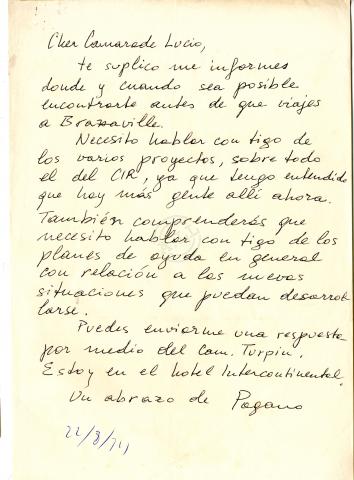 Cher Camarade Lucio,
te suplico me informes
donde y cuando sea posible
encontrarte antes de que viajes
a Brazzaville.
Necesito hablar con tigo de
los varios proyectos, sobre todo
el del CIR, ya que tengo entendido
que hay más gente allí ahora.
También comprenderás que
necesito hablar con tigo de los
planes de ayuda en general
con relación a las nuevas
situaciones que puedan desarrol
larse.
Puedes enviarme una respuesta
por medio del Cam. Turpin.
Estoy en el hotel Intercontinental.
Un abrazo de Pagano
22/8/74